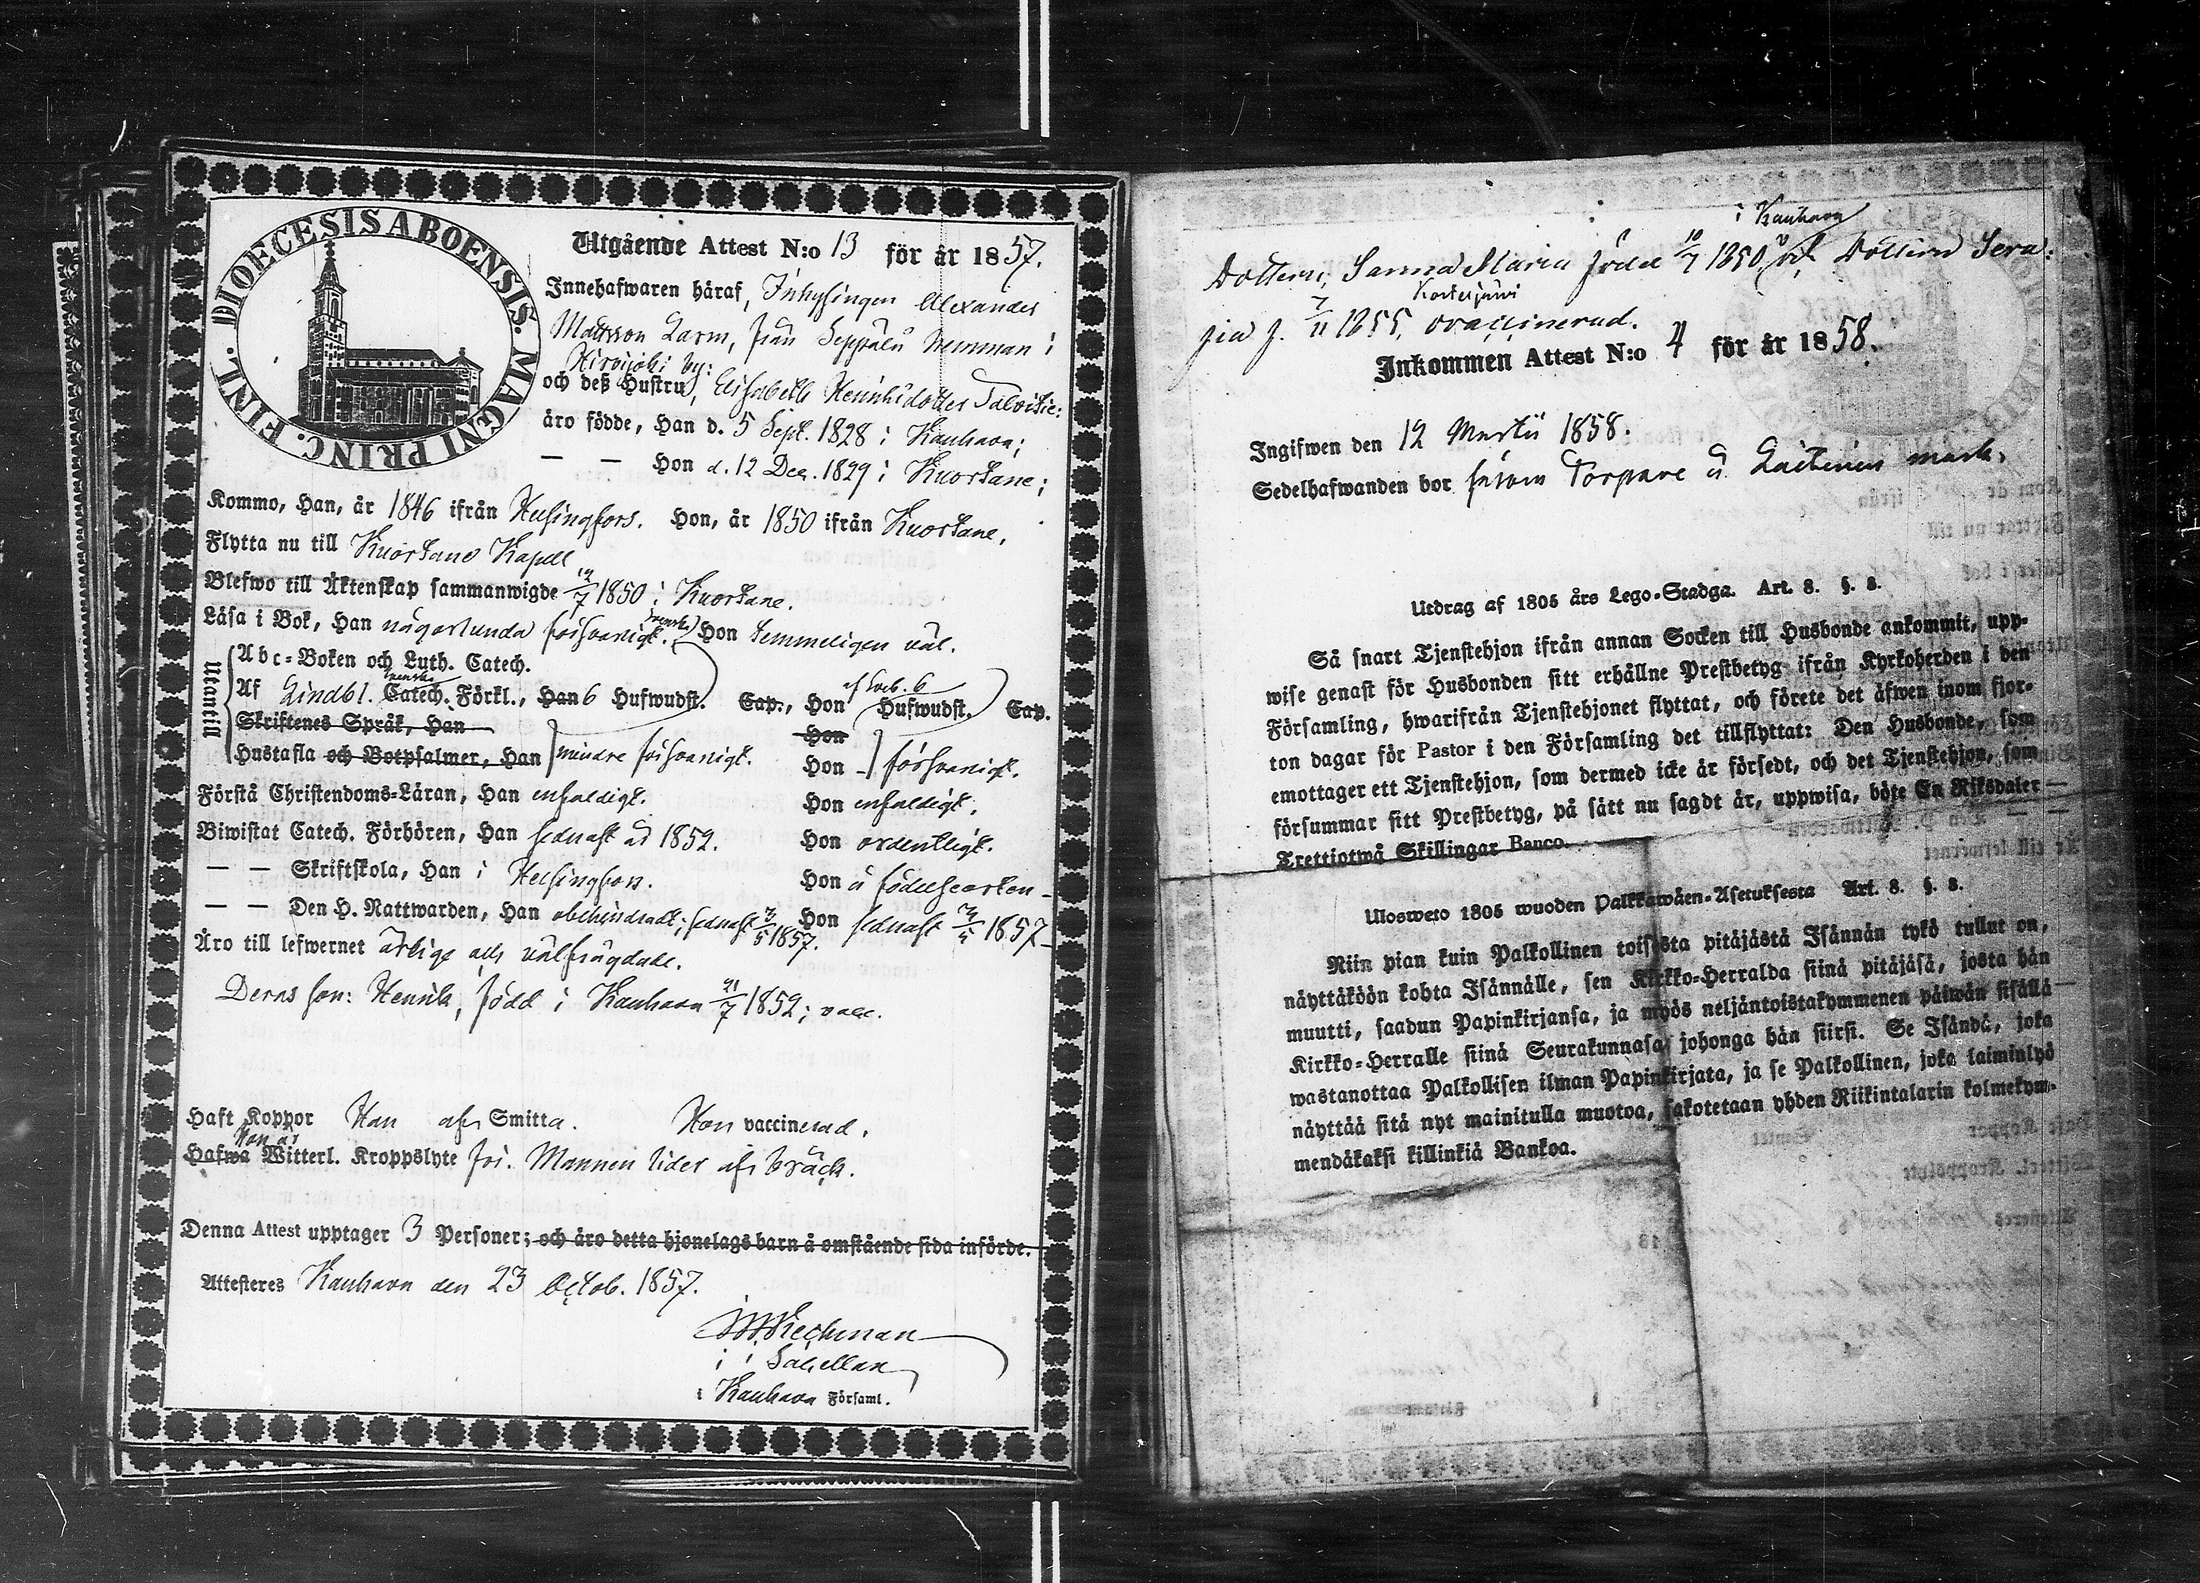 DIOECESIS ABOENSIS. MAGNI PRINC. FINL.
Utgående Attest N:o 13 för år 1857.
Innehafwaren häraf, Inhysingen Alexander
Mattsson Larm, från Seppälä hemman i
Hirvijoki by:
och deß Hustru, Elisabeth Henriksdotter Talvitie:
äro födde, Han d. 5 Sept. 1828 i Kauhava;
— — Hon d. 12 Dec. 1829 i Kuortane;
Kommo, Han, år 1846 ifrån Helsingfors. Hon, år 1850 ifrån Kuortane,
Flytta nu till Kuortane Kapell
Blefwo till Äktenskap sammanwigde 12/7 1850 i Kuortane.
Läsa i Bok, Han någorlunda försvarligt. (svenska) Hon temmeligen väl.
Utantill
Abc-Boken och Luth. Catech.
Af Lindbl. svenska Catech. Förkl., Han 6 Hufwudst. Cap., Hon 6 Hufwudst. Cap.
Skriftenes Språk, Han Hon
Hustafla och Botpsalmer, Han mindre försvarligt. Hon försvarligt.
Förstå Christendoms-Läran, Han enfaldigt. Hon enfaldigt.
Biwistat Catech. Förhören, Han sednast år 1852. Hon ordentligt.
— — Skriftskola, Han i Helsingfors. Hon å födelseorten
— — Den H. Nattwarden, Han obehindradt; sednast 3/5 1857. Hon sednast 24/5 1857
Äro till lefwernet ärlige och välfrägdade.
Deras son: Henrik, född i Kauhava 21/7 1852; vacc.
Haft Koppor Han af Smitta. Hon vaccinerad.
Hon är
Hafwa Witterl. Kroppslyte fri. Mannen lider af bråck.
Denna Attest upptager 3 Personer; och äro detta hjonelags barn å omstående sida införde.
Attesteras Kauhava den 23 Octob. 1857.
Sacellan
i Kauhava Församl.
i Kauhava
Dottern, Sanna Maria född 10/7 1850, Dottern Sera:
Kortesjärvi
fia f. 7/11 1855, ovaccinerad.
Inkommen Attest N:o 4 för år 1858.
Ingifwen den 12 Martii 1858.
Sedelhafwanden bor såsom Torpare å mark.
Utdrag af 1805 års Lego-Stadga. Art. 8. §. 8.
Så snart Tjenstehjon ifrån annan Socken till Husbonde ankommit, upp-
wise genast för Husbonden sitt erhållne Prestbetyg ifrån Kyrkoherden i den
Församling, hwarifrån Tjenstehjonet flyttat, och förete det äfwen inom fjor-
ton dagar för Pastor i den Församling det tillflyttat: Den Husbonde, som
emottager ett Tjenstehjon, som dermed icke är försedt, och det Tjenstehjon, som
försummar sitt Prestbetyg, på sätt nu sagdt är, uppwisa, böte En Riksdaler
Trettiotwå Skillingar Banco.
Ulosweto 1805 wuoden Palkkawäen-Asetuksesta Art. 8. §. 8.
Niin pian kuin Palkollinen toisesta pitäjästä Isännän tykö tullut on,
näyttäköön kohta Isännälle, sen Kirkko-Herralda siinä pitäjäsä, josta hän
muutti, saadun Papinkirjansa, ja myös neljäntoistakymmenen päiwän sisällä
Kirkko-Herralle siinä Seurakunnasa johonga hän siirsi. Se Isändä, joka
wastanottaa Palkollisen ilman Papinkirjata, ja se Palkollinen, joka laiminlyö
näyttää sitä nyt mainitulla muotoa, sakotetaan yhden Riikintalarin kolmekym-
mendäkaksi killinkiä Bankoa.